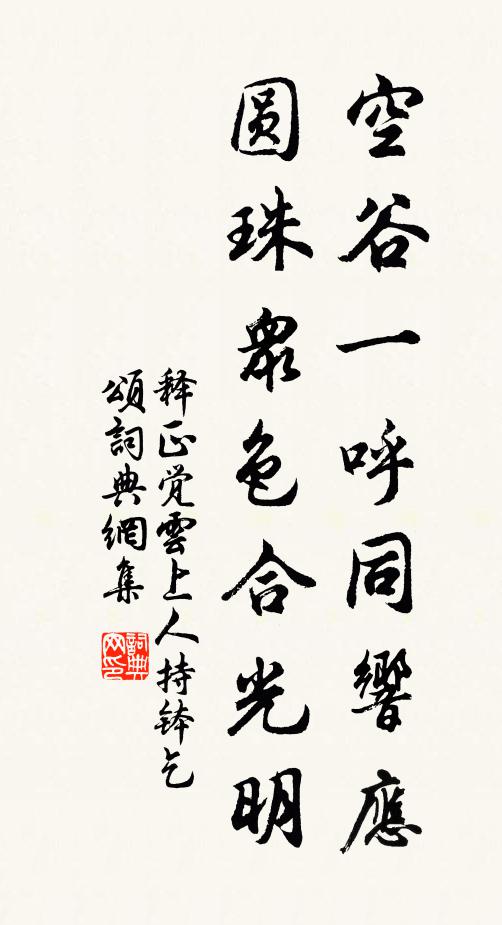 空谷一呼同響應
圓珠衆色合光明
释正觉雲上人持钵乞
頌詞典網集
詞典网印